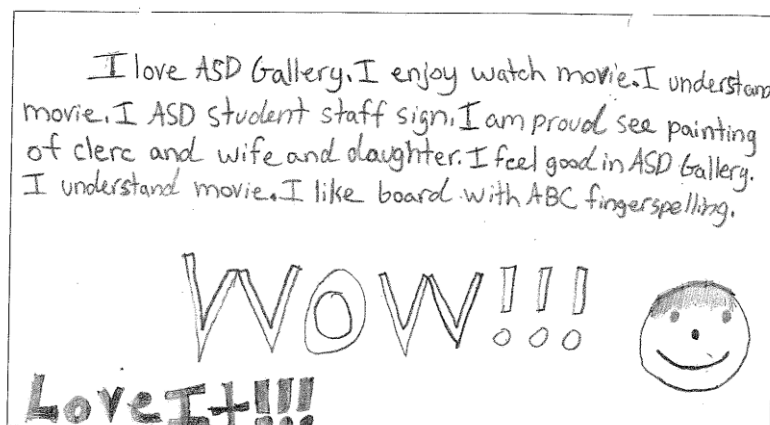 I love ASD Gallery. I enjoy watch movie. I understand
movie. I ASD student staff sign. I am proud see painting
of clerc and wife and daughter. I feel good in ASD Gallery.
I understand movie. I like board with ABC fingerspelling.
WOW!!!
Love It!!!